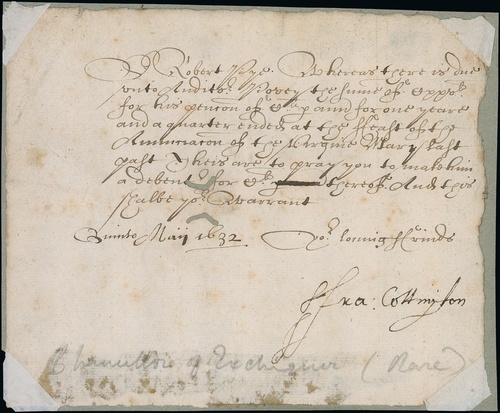 Sr Robert Pye. Whereas there is due
unto Auditor Povey the summe of
for his pencon of p ann for one yeare
and a quarter ended at the ffeast of the
Annunciacon of the Virgine Mary last
past Theis are to pray you to make him
a debentr for thereof. And this
shalbe yor Warrant
Quinto Maij 1632 yor loving ffreinds
ffra: Cottington
Chancellor of Exchequer (Rare)